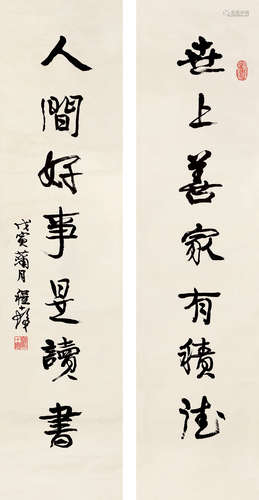 世上善家有積德
人間好事是讀書
戊寅蒲月程十髮